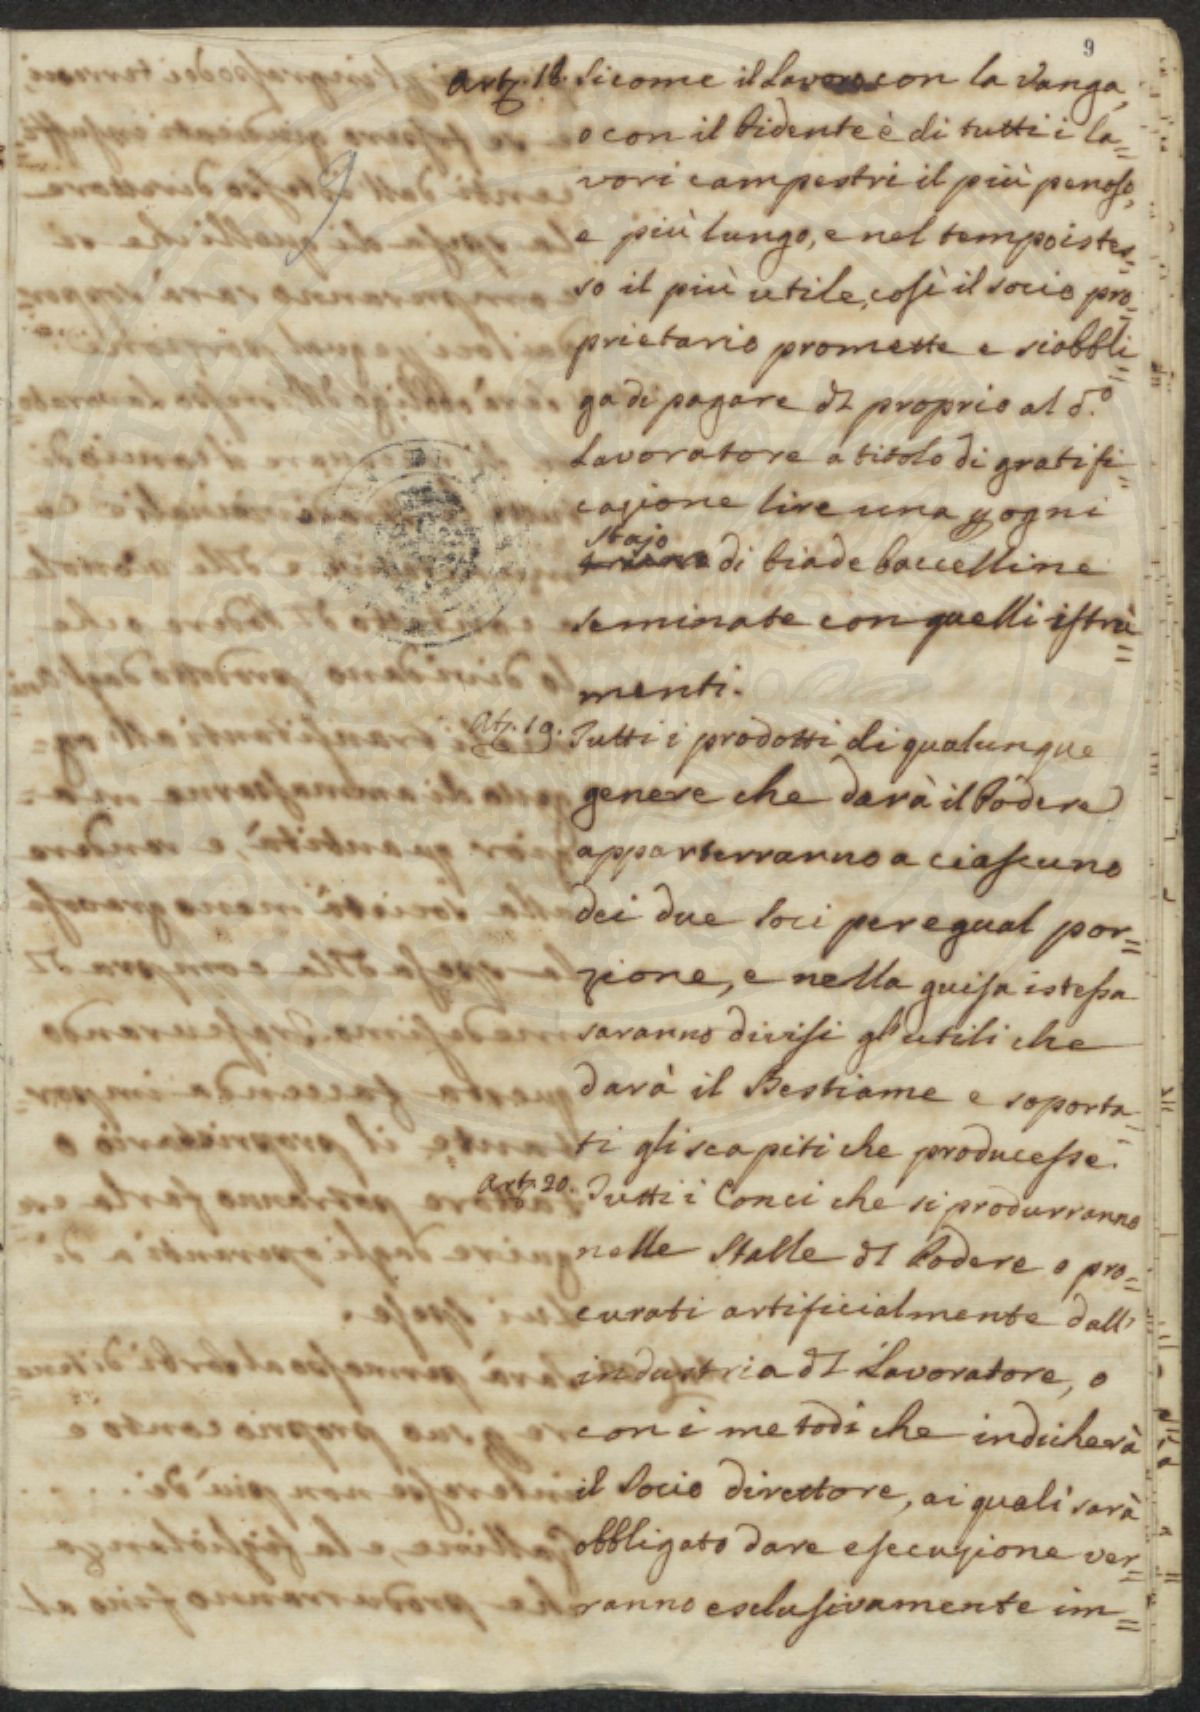 9
Art. 18. Sicome il Lavoro con la Vanga,
o con il bidente è di tutti i la=
vori campestri il più penoso,
e più lungo, e nel tempo istes=
so il più utile, così il socio pro=
prietario promette e si obbli=
ga di pagare dl proprio al d.º
Lavoratore a titolo di gratifi=
cazione lire una p ogni
Stajo
di biade baccelline
seminate con quelli istru=
menti.
Art. 19. Tutti i prodotti di qualunque
genere che darà il Podere
apparterranno a ciascuno
dei due Soci per egual por=
zione, e nella guisa istessa
saranno divisi gl'utili che
darà il Bestiame e soporta=
ti gli scapiti che producesse.
Art. 20. Tutti i Conci che si produrranno
nelle Stalle dl Podere o pro=
curati artificialmente dall'
industria dl Lavoratore, o
con i metodi che indicherà
il Socio direttore, ai quali sarà
obbligato dare esecuzione ver=
ranno esclusivamente im=